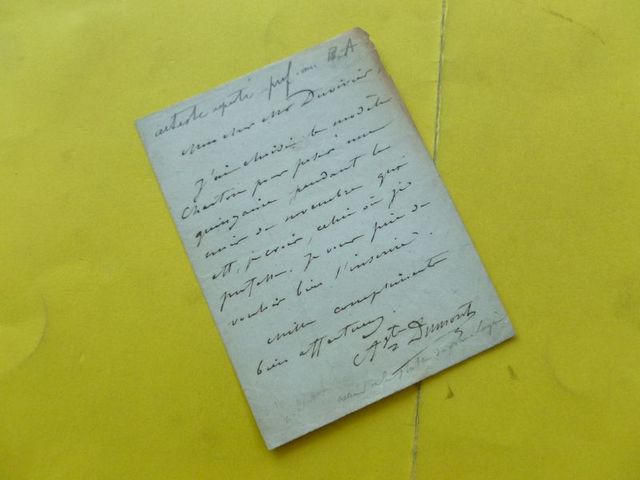 artiste réputé prof. aux B. A
Mon cher Mr Duvivier
J'ai choisi le modèle
Chariton pour poser une
quinzaine pendant le
mois de novembre qui
est, je crois, celui où je
professe. Je vous prie de
vouloir bien l'inscrire.
mille compliments
bien affectueux
Agte Dumont